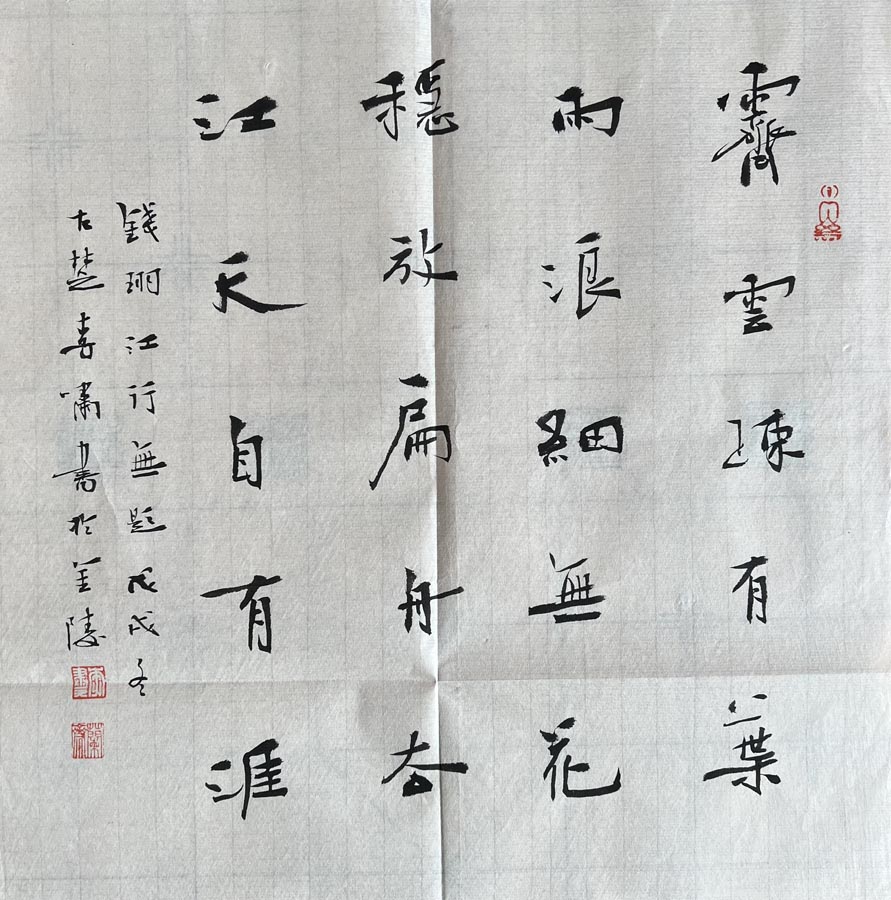 霽雲疎有葉
雨浪細無花
穩放扁舟去
江天自有涯
錢珝江行無題戊戌冬
古楚嘯書於金陵